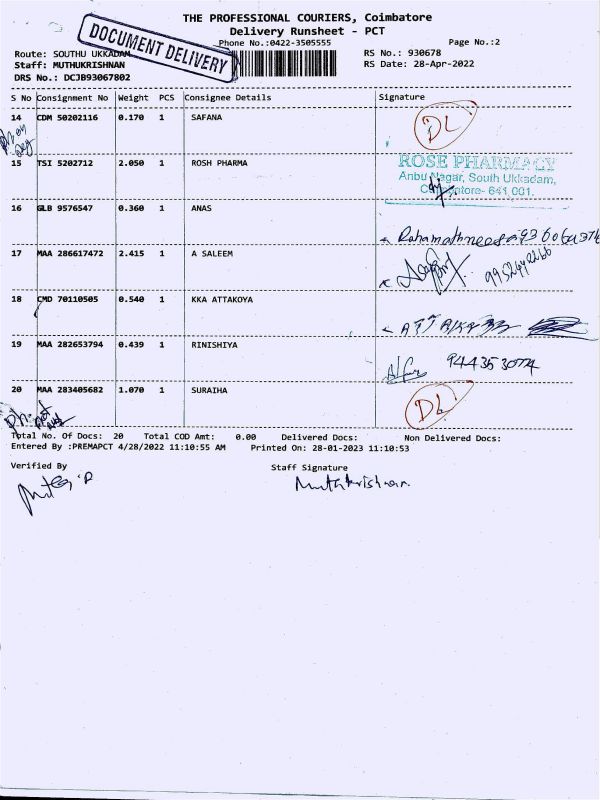 THE PROFESSIONAL COURIERS, Coimbatore
Delivery Runsheet - PCT
DOCUMENT DELIVERY
Phone No.:0422-3505555
Page No.:2
Route: SOUTHU UKKADAM
RS No.: 930678
Staff: MUTHUKRISHNAN
RS Date: 28-Apr-2022
DRS No.: DCJB93067802
S No Consignment No Weight PCS Consignee Details Signature
14 CDM 50202116 0.170 1 SAFANA DL
15 TSI 5202712 2.050 1 ROSH PHARMA
ROSE PHARMACY
Anbu Nagar, South Ukkadam,
Coimbatore- 641 001.
16 GLB 9576547 0.360 1 ANAS
17 MAA 286617472 2.415 1 A SALEEM
9952442266
18 CMD 70110505 0.540 1 KKA ATTAKOYA
19 MAA 282653794 0.439 1 RINISHIYA
20 MAA 283405682 1.070 1 SURAIHA DL
Total No. Of Docs: 20 Total COD Amt: 0.00 Delivered Docs: Non Delivered Docs:
Entered By :PREMAPCT 4/28/2022 11:10:55 AM Printed On: 28-01-2023 11:10:53
Verified By Staff Signature
Muthukrishnan